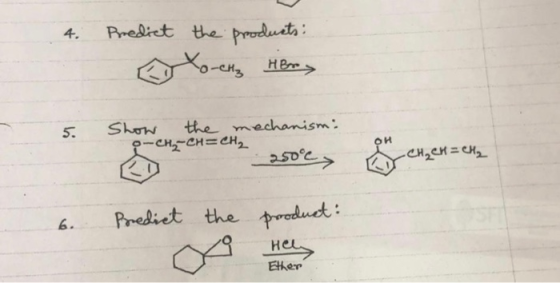 4. Predict the products:
O-CH3 HBr
5. Show the mechanism:
O-CH2-CH=CH2
250°C
OH
CH2CH=CH2
6. Predict the product:
O HCl
Ether